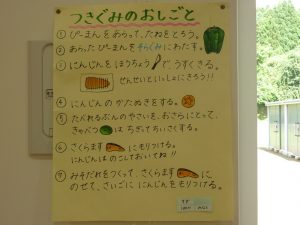 つきぐみのおしごと
① ぴーまんをあらって、たねをとろう。
② あらったぴーまんをそらぐみにわたす。
③ にんじんをほうちょうで、うすくきる。
せんせいといっしょにきろう!!
④ にんじんのかたぬきをする。
⑤ たべれるぶんのやさいを、おさらにとって、
きゃべつはちぎってちいさくする。
⑥ さくらますにもりつける。
にんじんはのこしておいてね!!
⑦ みそだれをつくって、さくらますに
のせて、さいごににんじんをもりつける。